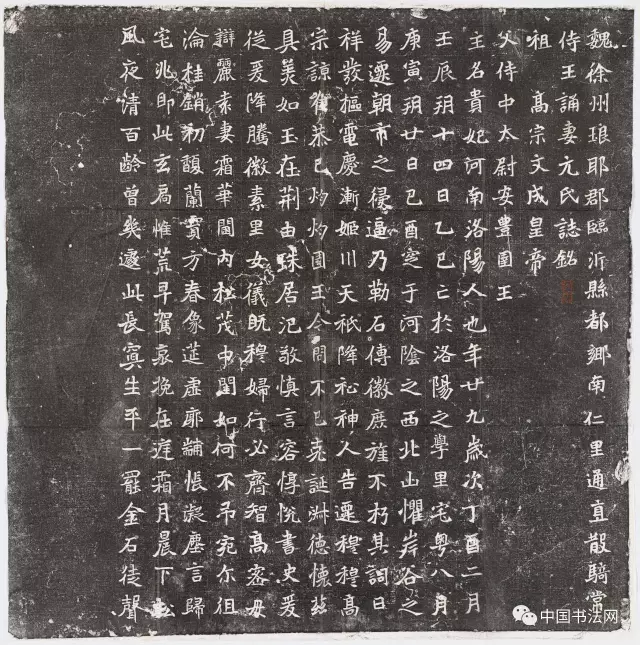 魏徐州琅耶郡臨沂縣都鄉南仁里通直散騎常
侍王誦妻元氏誌銘
祖高宗文成皇帝
父侍中太尉安豐圉王
主名貴妃河南洛陽人也年廿九歲次丁酉二月
壬辰朔十四日乙巳亡於洛陽之學里宅粵八月
庚寅朔廿日己酉窆于河陰之西北山懼岸谷之
易遷朝市之侵逼乃勒石傳徽庶旌不朽其詞曰
祥發樞電慶漸姬川天祇降祉神人告遷穆穆高
宗諒唯恭己灼灼圉王令問不已克誕淑德懷茲
具美如玉在荆由珠居汜敬慎言容惇悅書史爰
從爰降騰徽素里女儀既穆婦行必齊智高密母
辯麗素妻霜華閫內松茂中閨如何不弔宛尔徂
淪桂銷初馥蘭實方春像筵虛廓黼悵凝塵言歸
宅兆即此玄扃惟荒早駕哀挽在庭霜月晨下松
風夜清百齡曾幾遽此長冥生平一罷金石徒聲
中国书法网